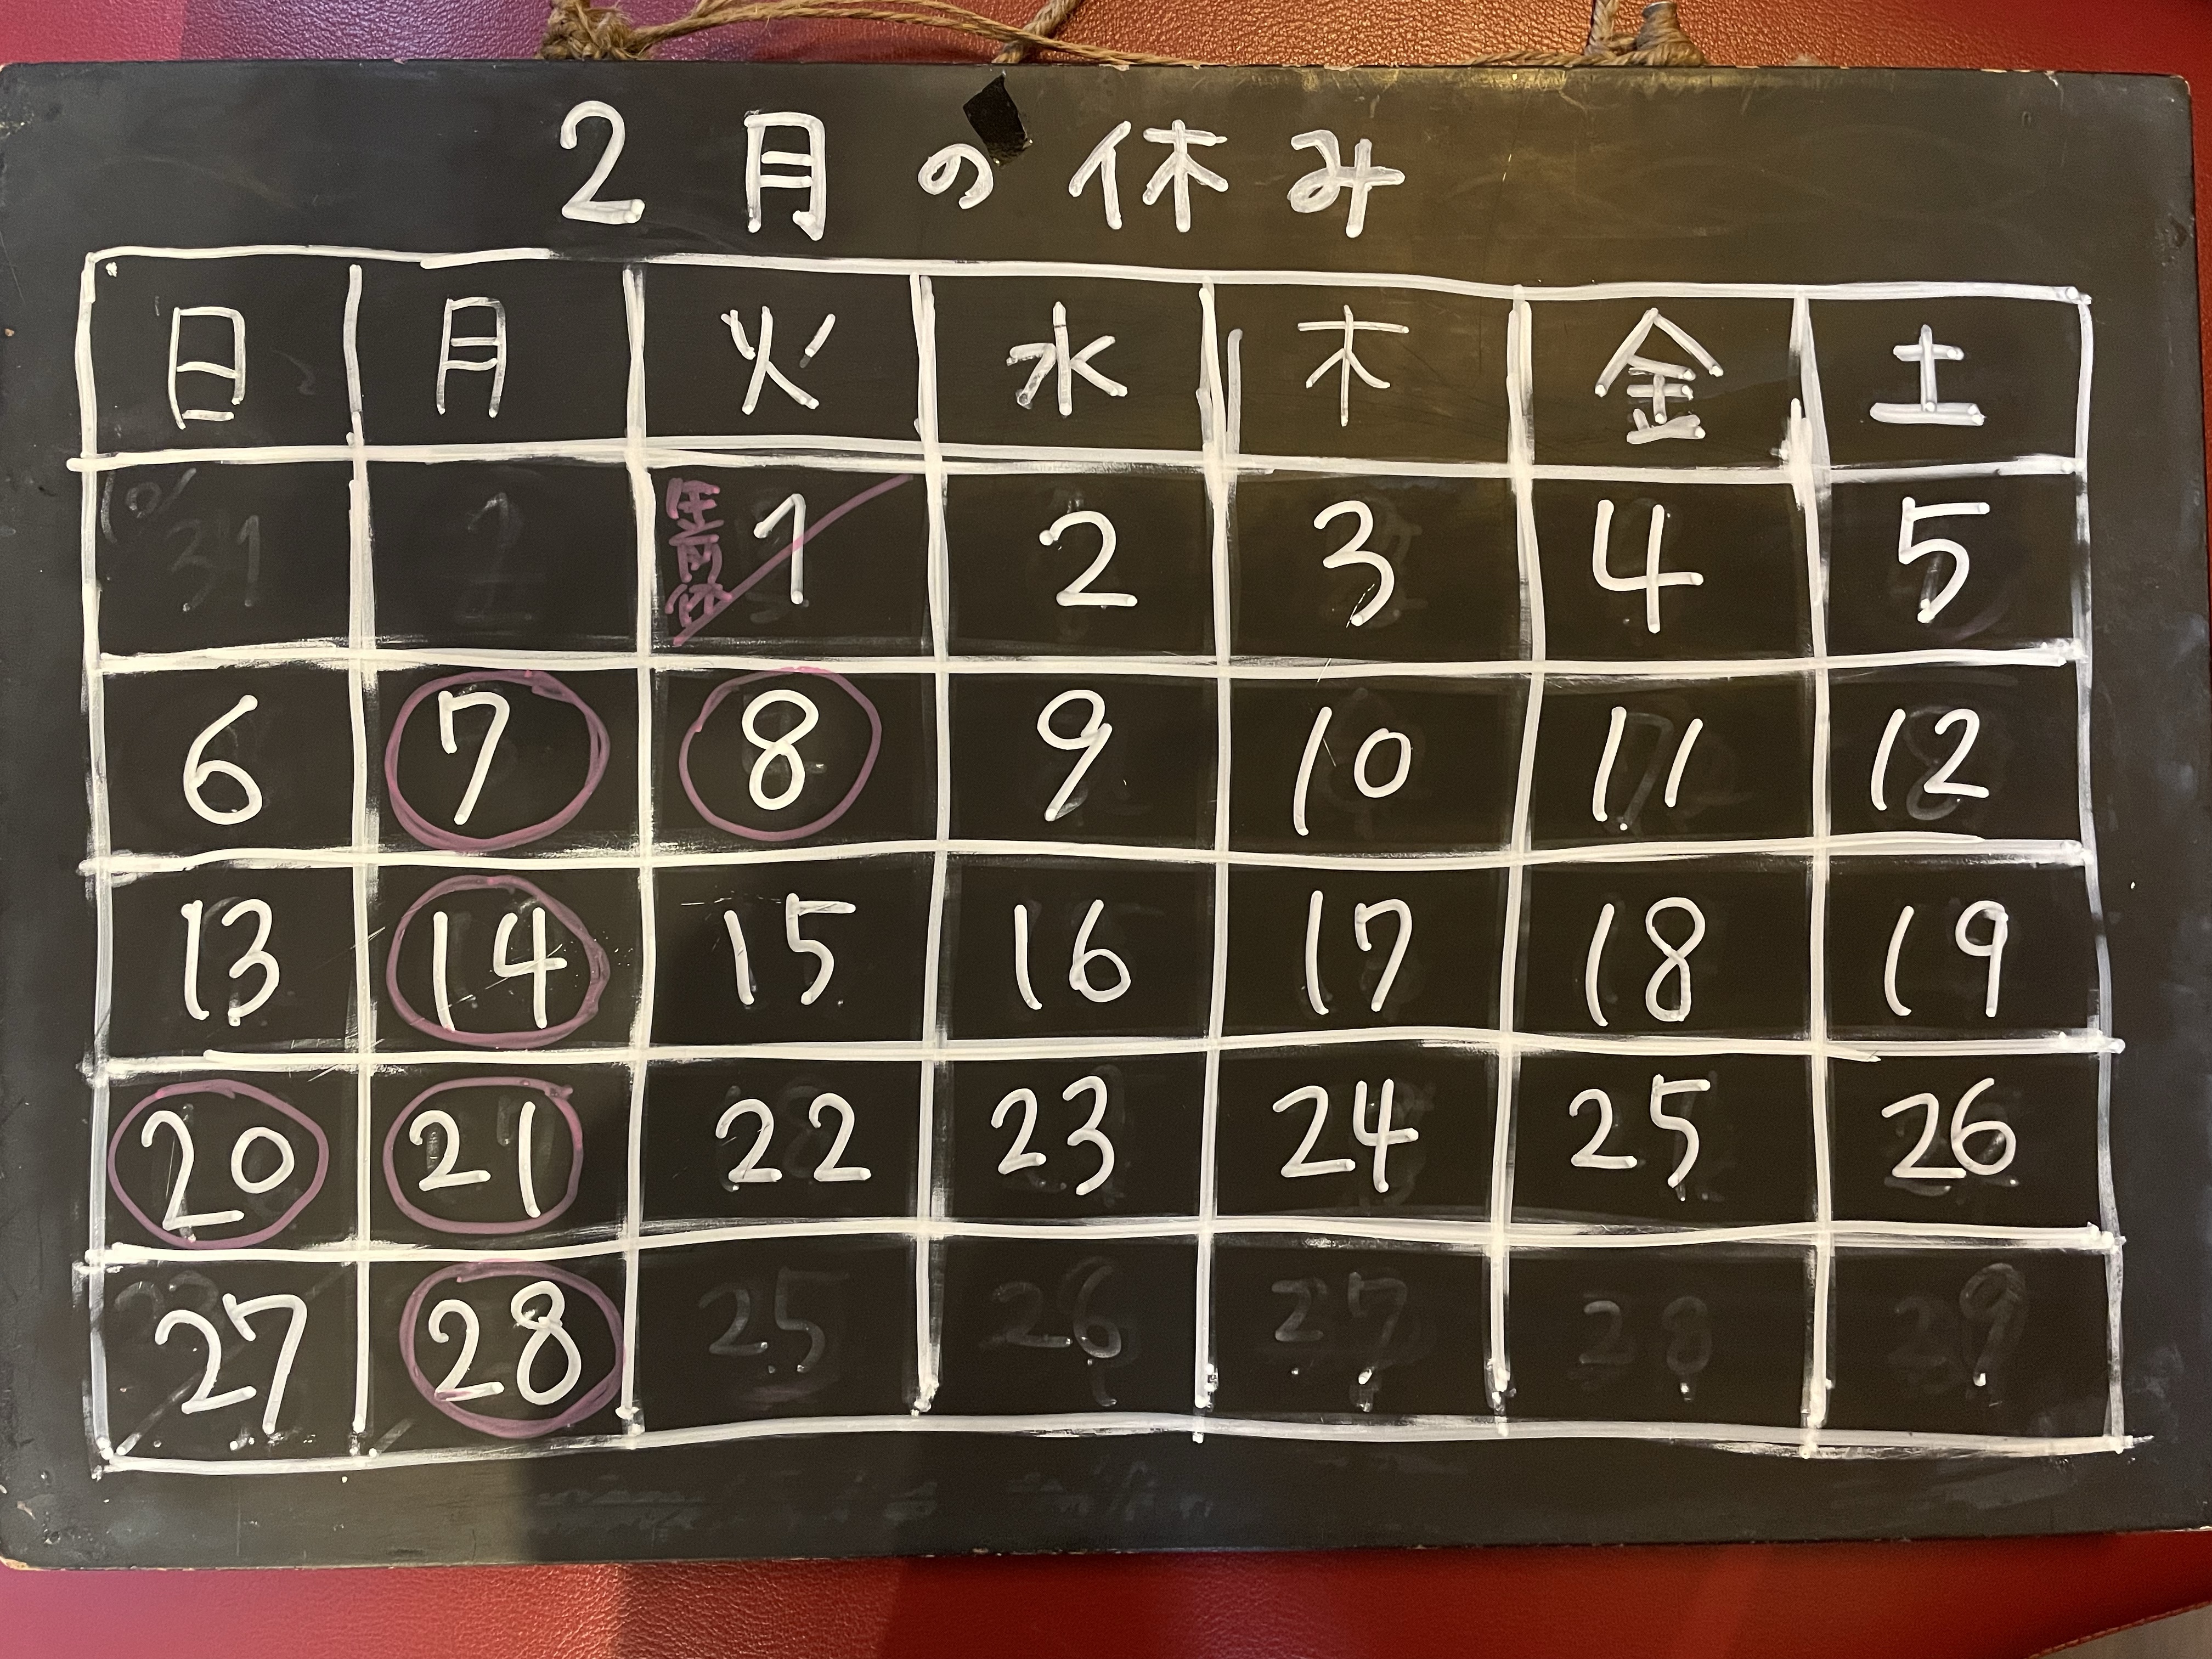 2月の休み
日 月 火 水 木 金 土
午前休 1 2 3 4 5
6 7 8 9 10 11 12
13 14 15 16 17 18 19
20 21 22 23 24 25 26
27 28